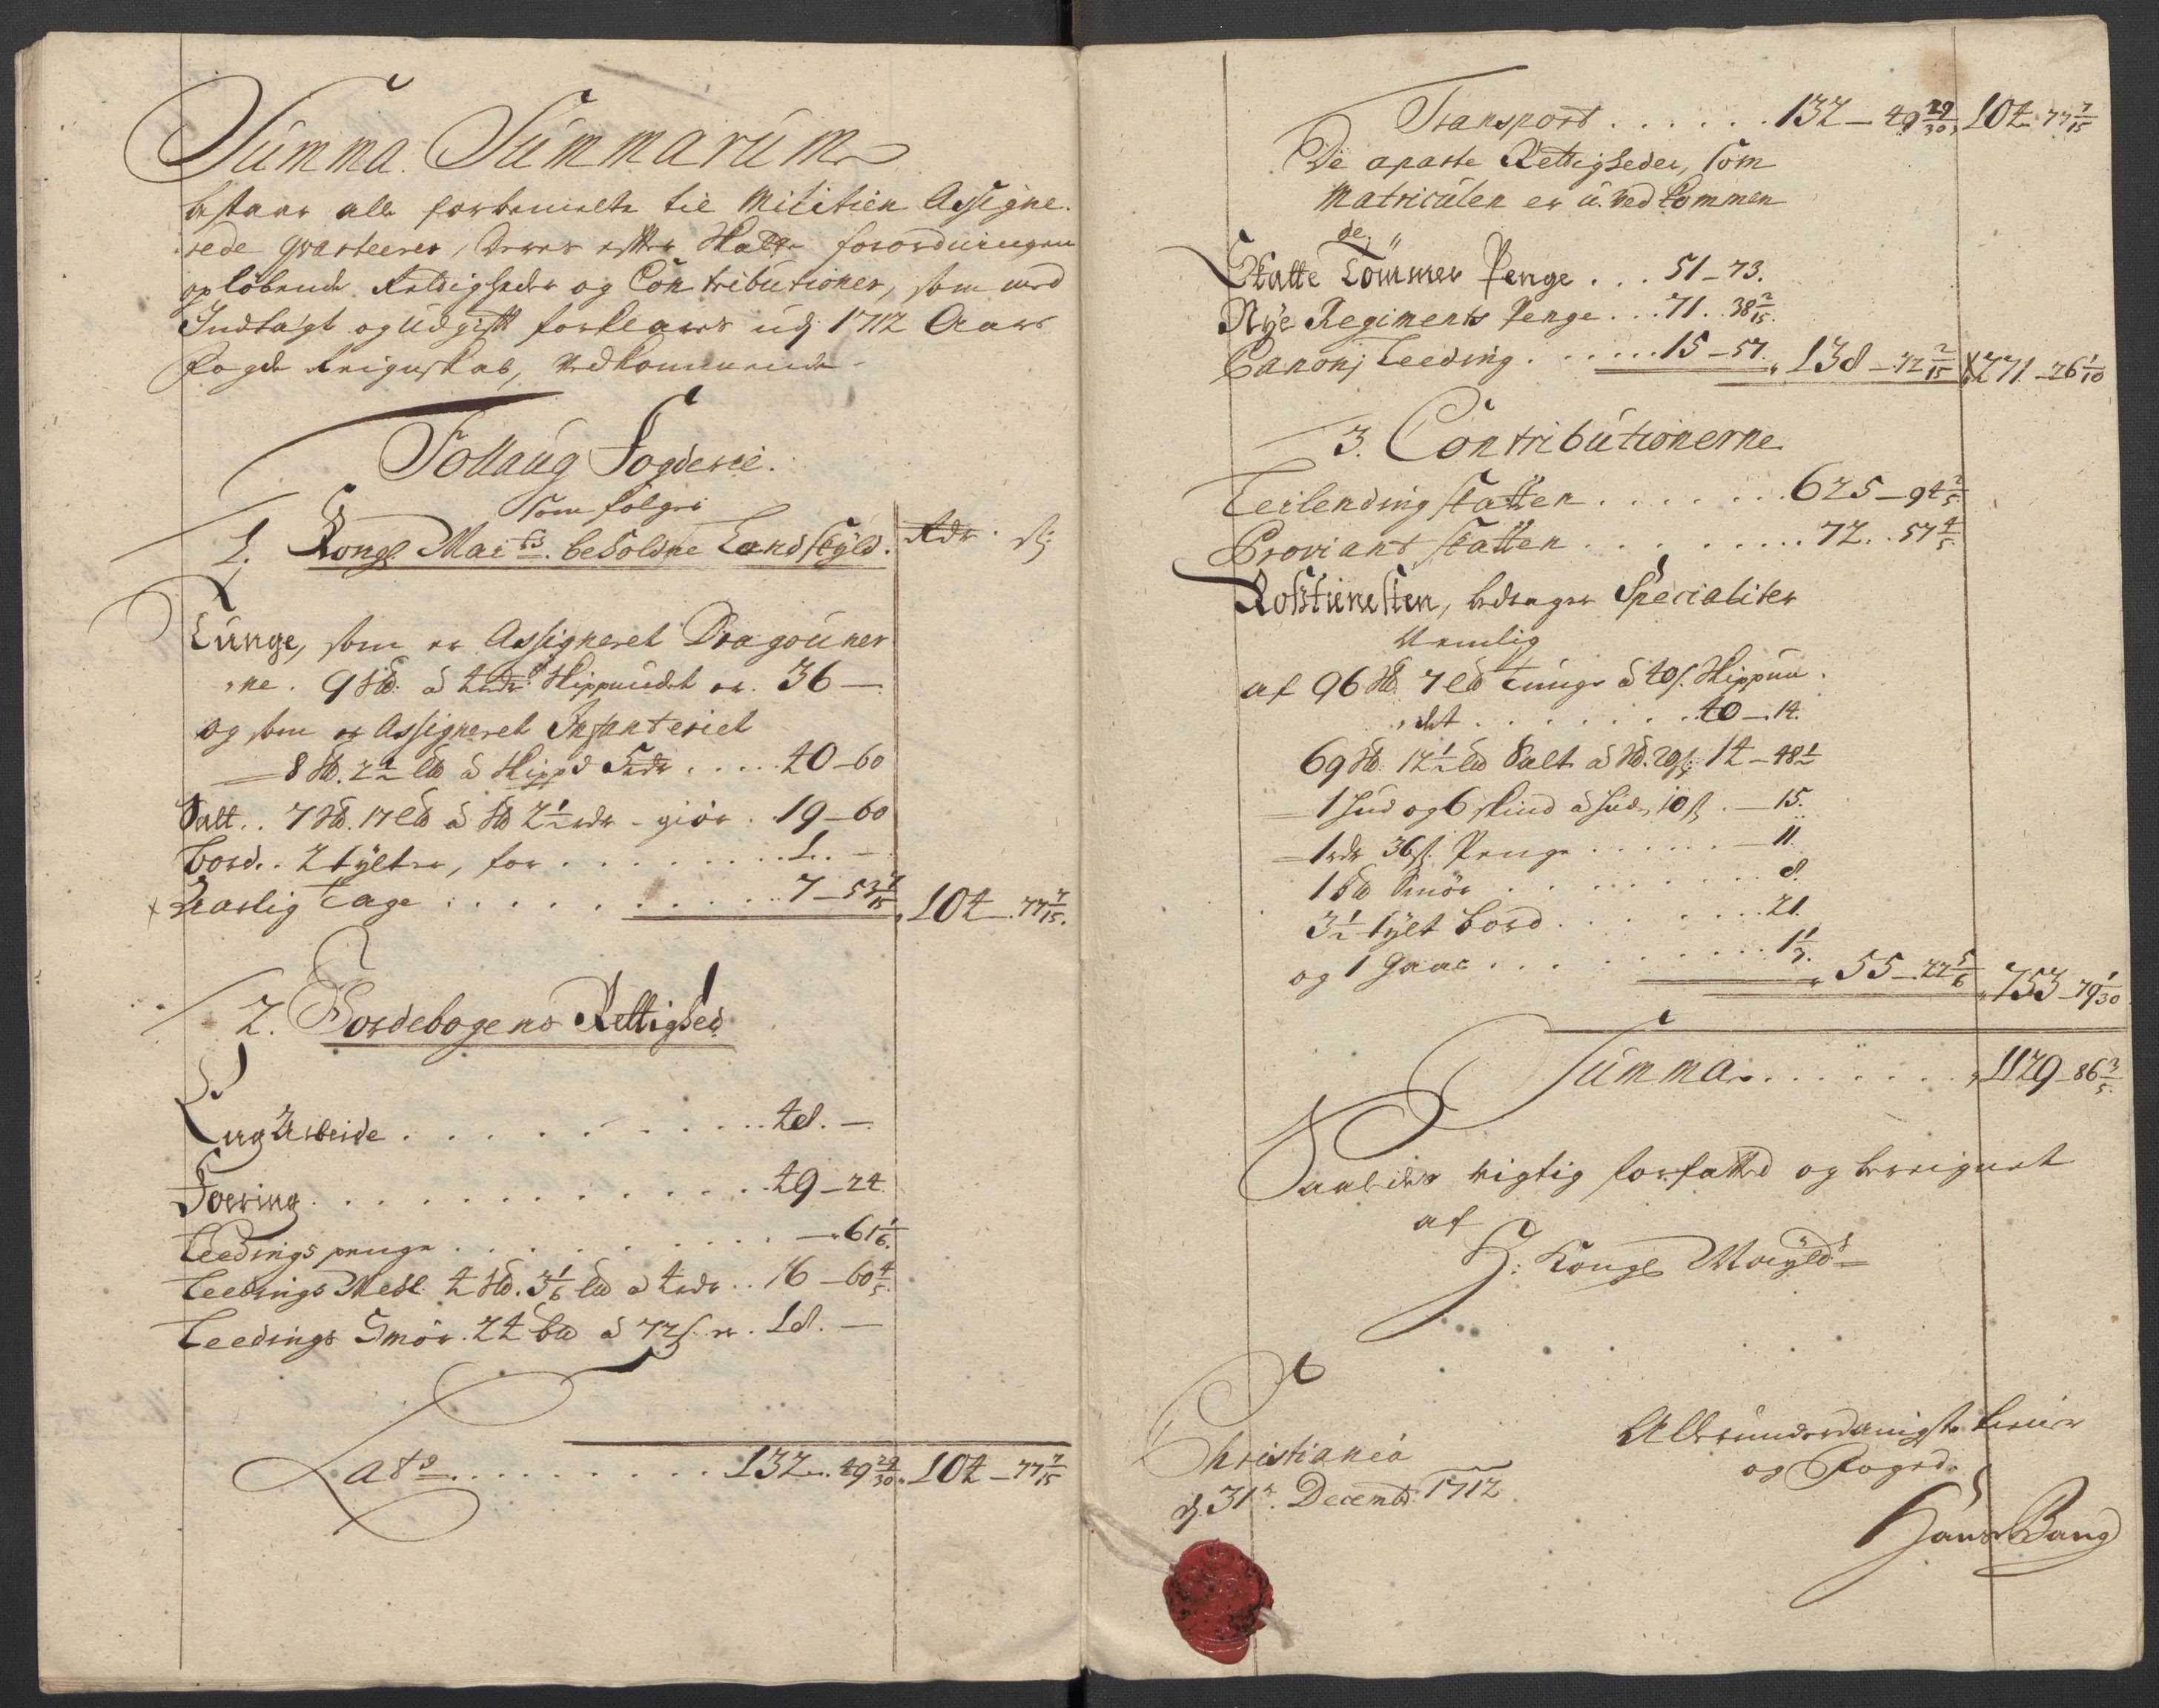 Summa Summarum
bestaar alle forbemelte til Militien Assigne-
rede qvarteerer, deres efter Skatte forordningen
opløbende Rettigheder og Contributioner, som ved
Indtægt og Udgift forklares udj 1712 Aars
Fogde Reignskab, vedkommende
Follaug Fogderie.
som følger
1. Kongl Mai ts beholdne Landskyld. Rdr. ß
Tunge, som er Assigneret Dragouner
ne. 9 Sk℔: á 4 rdr Skippundet er. 36 —
og som er Assigneret Infanteriet
— 8 Sk℔. 2 1/2 L℔ á Skipp℔ 5 rdr . . . . 40 — 60
Salt. . 7 Sk℔. 17 L℔ á Sk℔ 2 1/2 rdr - giör . 19 — 60
Bord. . 2 tÿlter, for . . . . . . . . 1. —
Aarlig Tage . . . . . . . . . . 7 — 53 7/15 104 — 77 7/15.
2. Jordebogens Rettighed
Lug Arbeide . . . . . . . . . . 48. —
Foering . . . . . . . . . . . 49 — 24.
Leedings penge . . . . . . . . . — 61 1/6.
Leedings Meel 4 Sk℔. 3 1/6 L℔ á 4 rdr . . 16 — 60 4/5.
Leedings Smör. 24 B℔ á 72 ß er. 18. —
Lats . . . . . . . . . 132 — 49 29/30. 104 — 77 7/15
Transport . . . . . . 132 — 49 29/30, 104 — 77 7/15
De aparte Rettigheder, som
Matriculen er u-vedkommen
de,
Skatte Tømmer Penge . . . 51 — 73.
Nÿe Regiments Penge . . . 71. . 38 2/15.
Canonj Leeding . . . . . . 15 — 57. 138 — 72 2/15 271 — 26 1/10
3. Contributionerne
Leilending skatten . . . . . . . 625 — 94 2/5.
Proviant skatten . . . . . . . . . 72. . 57 4/5.
Rosstienesten, bedrager Specialiter
Nemlig
af 96 Sk℔ 7 L℔ Tunge á 40 ß. Skippun-
det . . . . . . . . 40 — 14.
69 Sk℔ 12 1/2 L℔ Salt á Sk℔. 20 ß: 14 — 48 1/2
— 1 Hud og 6 skind á Hud, 10 ß . — 15.
— 1 rdr 36 ß. Penge . . . . . . — 11.
1 B℔ Smör . . . . . . . . . 8.
3 1/2 tÿlt bord . . . . . . . . 21.
og 1 Gaas . . . . . . . . . 1 1/3. 55 — 22 5/6 753 — 79 1/30
Summa . . . . . . . 1129 — 86 3/5.
Saaledes rigtig forfattet og bereignet
af
H: Kongl Maÿts
Christiania
dj 31 te. Decembr: 1712.
Allerunderdanigste tiener
og Foged.
Hans Bang